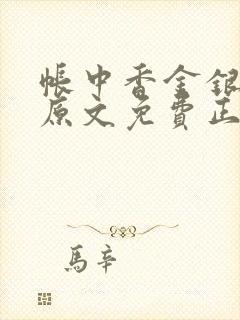 帳中香金銀
原文免費正
馬辛